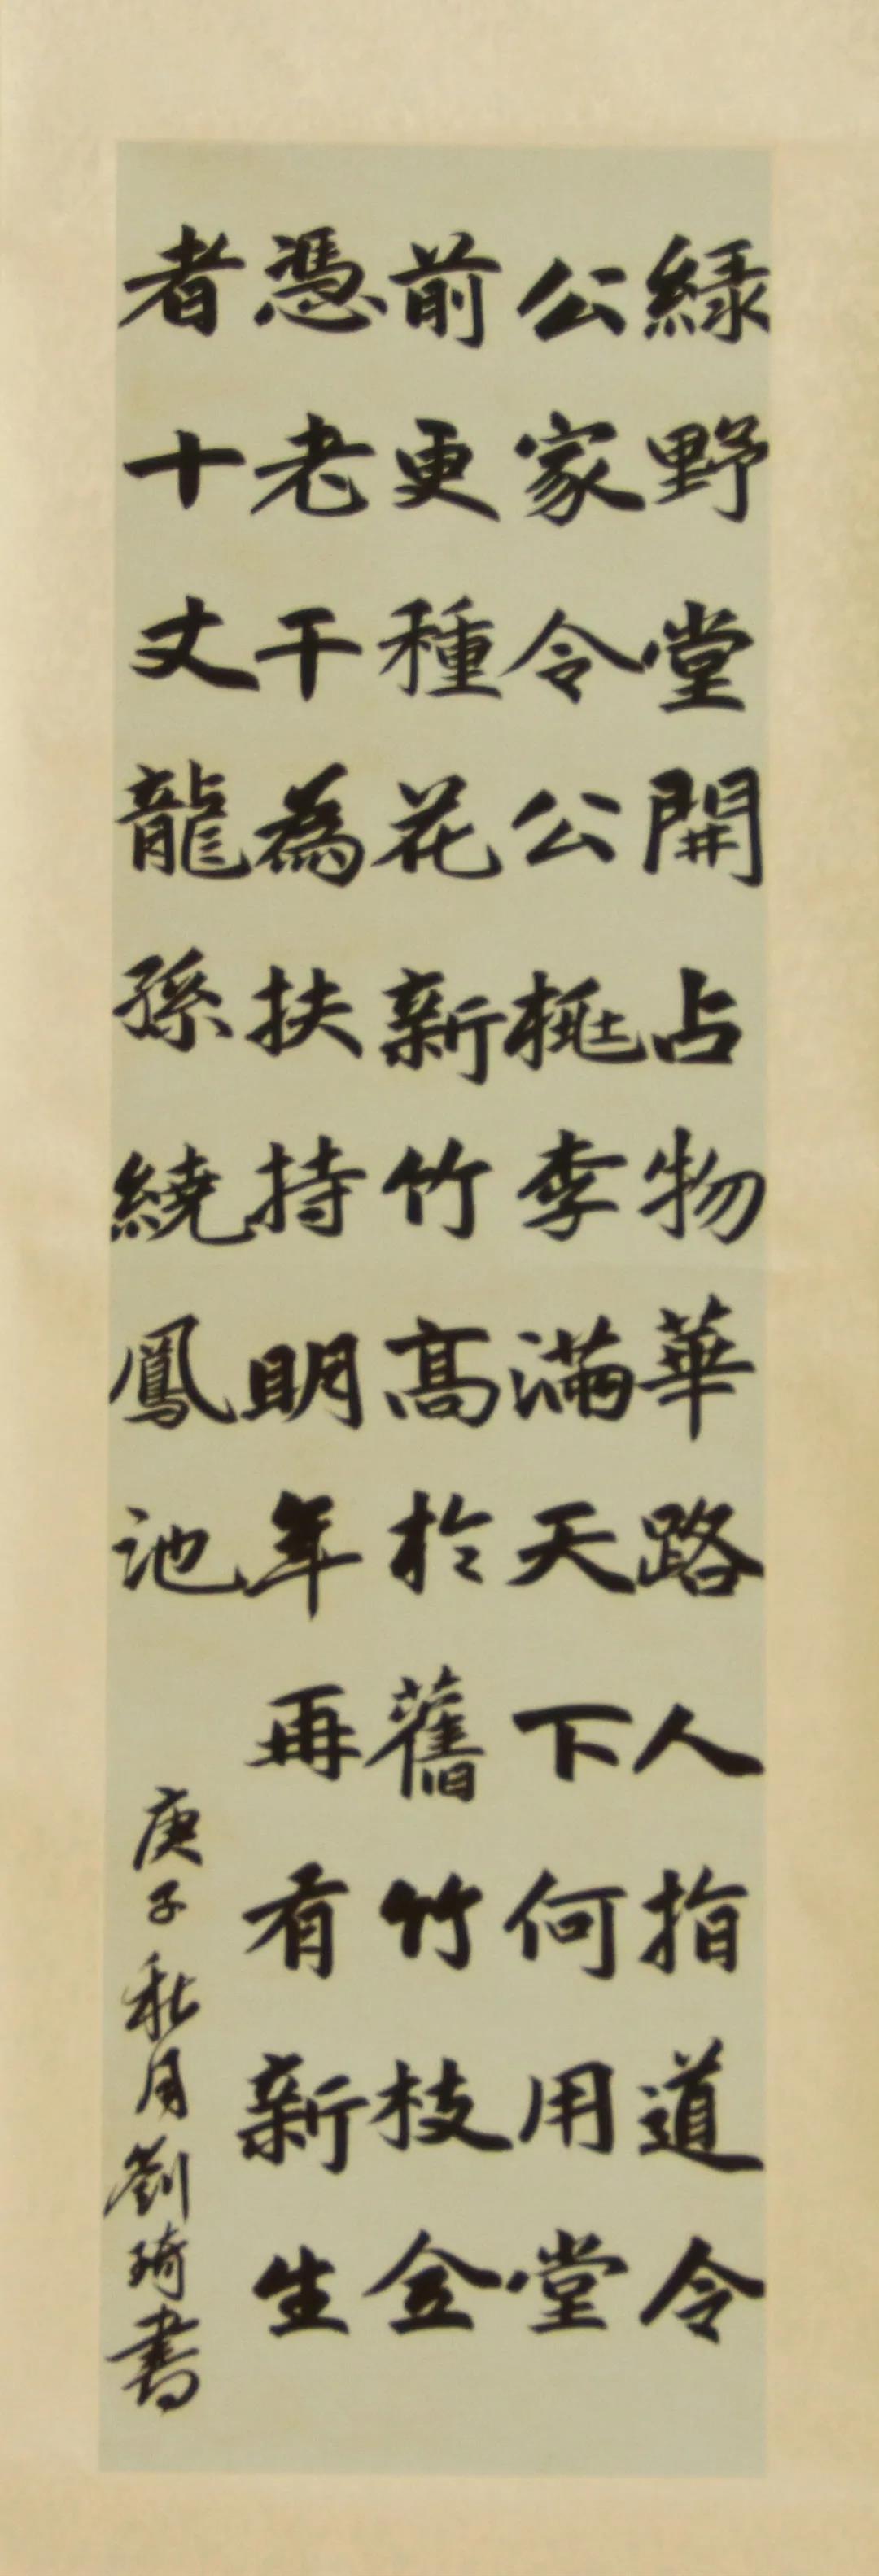 緑野堂開占物華路人指道令
公家令公桃李滿天下何用堂
前更種花新竹高於舊竹枝全
憑老干為扶持明年再有新生
者十丈龍孫繞鳳池
庚子秋月劉琦書